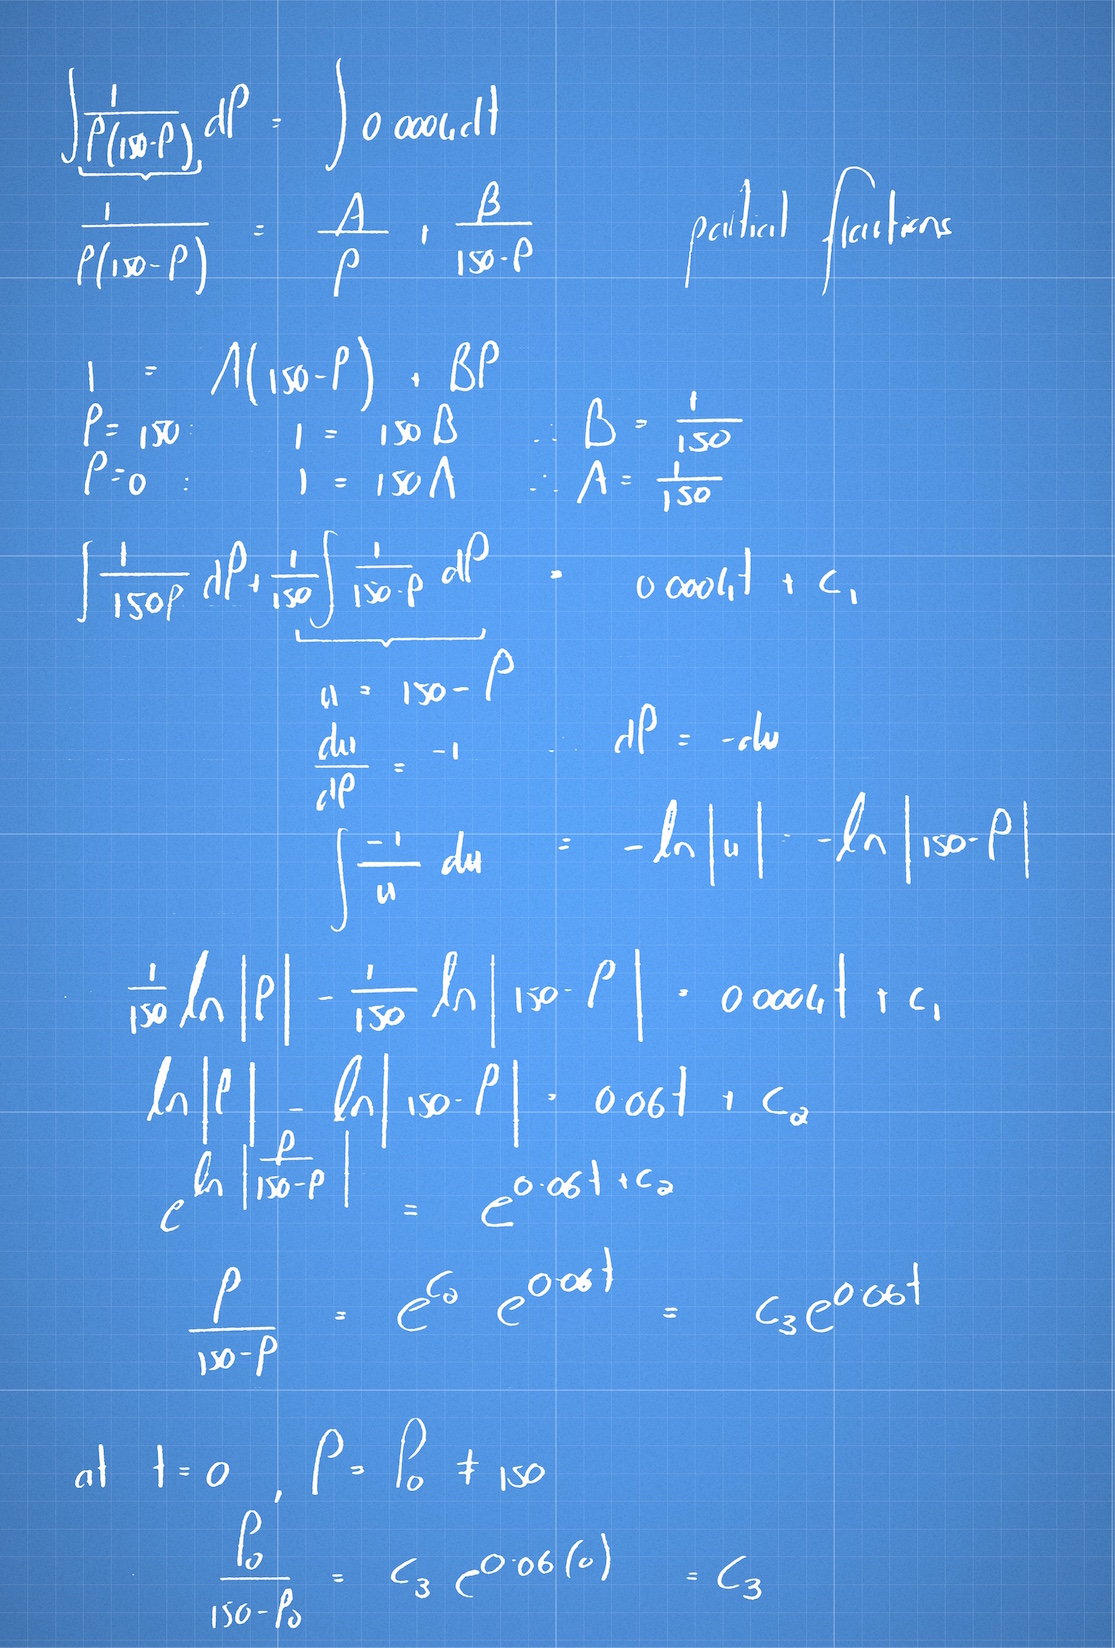 ∫ 1/(P(150-P)) dP = ∫ 0.0004 dt
1/(P(150-P)) = A/P + B/(150-P) partial fractions
1 = A(150-P) + BP
P = 150: 1 = 150B ∴ B = 1/150
P=0 : 1 = 150A ∴ A = 1/150
∫ 1/(150P) dP + 1/150 ∫ 1/(150-P) dP = 0.0004t + c₁
u = 150 - P
du/dP = -1 ∴ dP = -du
∫ -1/u du = -ln|u| = -ln|150-P|
1/150 ln|P| - 1/150 ln|150-P| = 0.0004t + c₁
ln|P| - ln|150-P| = 0.06t + c₂
e^(ln|P/(150-P)|) = e^(0.06t + c₂)
P/(150-P) = e^(c₂) e^(0.06t) = c₃e^(0.06t)
at t=0, P = P₀ ≠ 150
P₀/(150-P₀) = c₃ e^(0.06(0)) = c₃